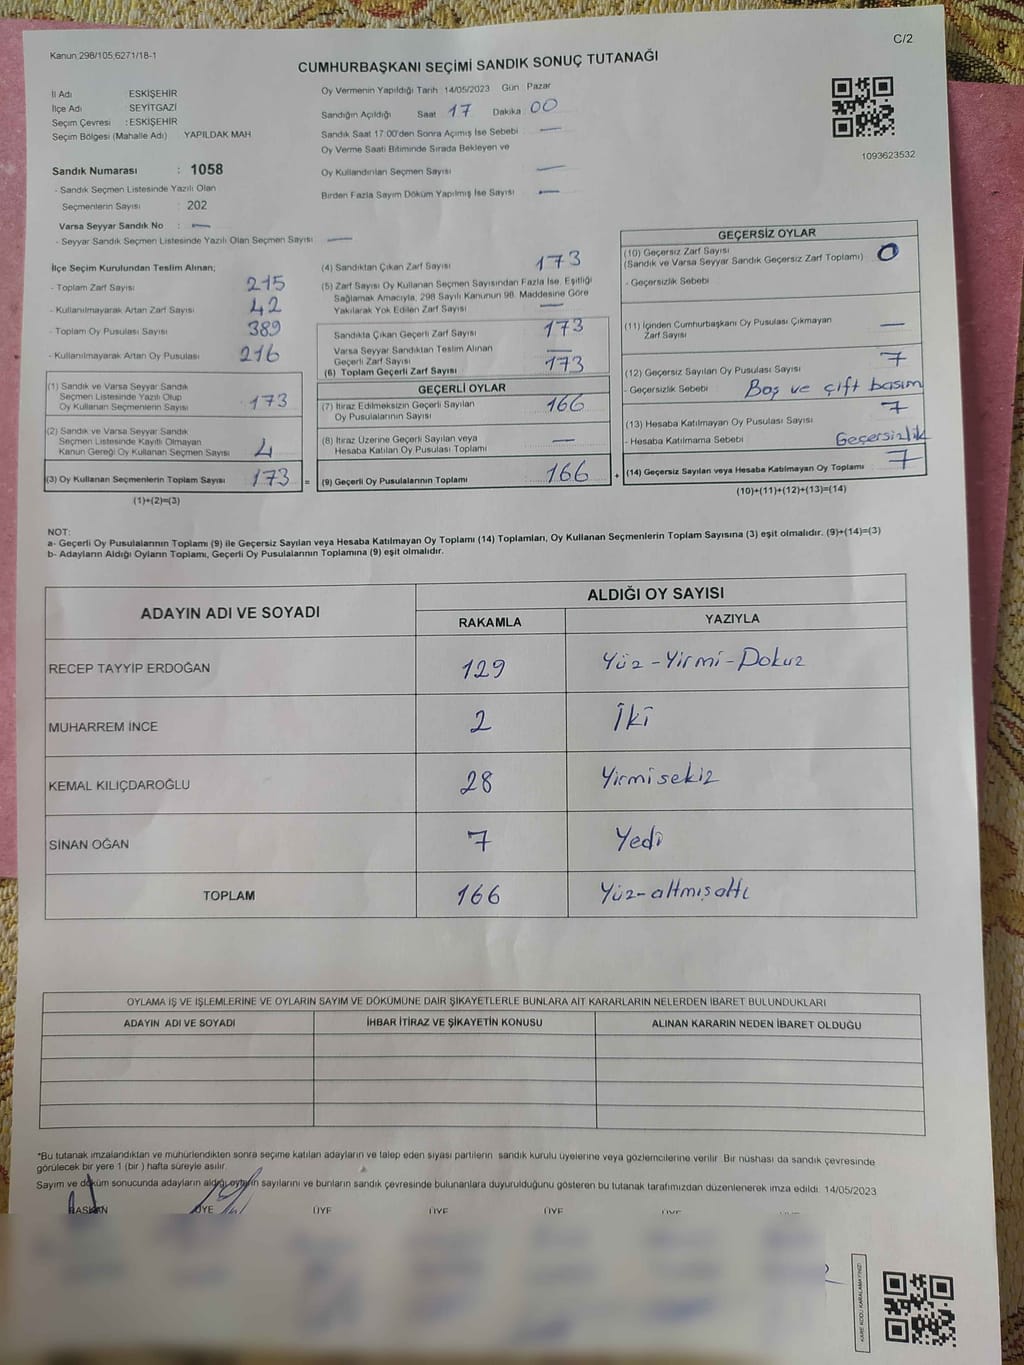 Kanun 298/105,6271/18-1
C/2
CUMHURBAŞKANI SEÇİMİ SANDIK SONUÇ TUTANAĞI
İl Adı ESKİŞEHİR
İlçe Adı SEYİTGAZİ
Seçim Çevresi : ESKİŞEHİR
Seçim Bölgesi (Mahalle Adı) YAPILDAK MAH
Sandık Numarası : 1058
- Sandık Seçmen Listesinde Yazılı Olan
Seçmenlerin Sayısı : 202
Varsa Seyyar Sandık No : —
- Seyyar Sandık Seçmen Listesinde Yazılı Olan Seçmen Sayısı —
Oy Vermenin Yapıldığı Tarih 14/05/2023 Gün Pazar
Sandığın Açıldığı Saat 17 Dakika 00
Sandık Saat 17:00'den Sonra Açımış İse Sebebi —
Oy Verme Saati Bitiminde Sırada Bekleyen ve
Oy Kullandırılan Seçmen Sayısı —
Birden Fazla Sayım Döküm Yapılmış İse Sayısı —
1093623532
İlçe Seçim Kurulundan Teslim Alınan;
- Toplam Zarf Sayısı 215
- Kullanılmayarak Artan Zarf Sayısı 42
- Toplam Oy Pusulası Sayısı 389
- Kullanılmayarak Artan Oy Pusulası 216
(1) Sandık ve Varsa Seyyar Sandık
Seçmen Listesinde Yazılı Olup
Oy Kullanan Seçmenlerin Sayısı 173
(2) Sandık ve Varsa Seyyar Sandık
Seçmen Listesinde Kayıtlı Olmayan
Kanun Gereği Oy Kullanan Seçmen Sayısı 4
(3) Oy Kullanan Seçmenlerin Toplam Sayısı 173 =
(1)+(2)=(3)
(4) Sandıktan Çıkan Zarf Sayısı 173
(5) Zarf Sayısı Oy Kullanan Seçmen Sayısından Fazla İse, Eşitliği
Sağlamak Amacıyla, 298 Sayılı Kanunun 98. Maddesine Göre
Yakılarak Yok Edilen Zarf Sayısı —
Sandıkta Çıkan Geçerli Zarf Sayısı 173
Varsa Seyyar Sandıktan Teslim Alınan
Geçerli Zarf Sayısı —
(6) Toplam Geçerli Zarf Sayısı 173
GEÇERLİ OYLAR
(7) İtiraz Edilmeksizin Geçerli Sayılan
Oy Pusulalarının Sayısı 166
(8) İtiraz Üzerine Geçerli Sayılan veya
Hesaba Katılan Oy Pusulası Toplamı —
(9) Geçerli Oy Pusulalarının Toplamı 166 +
GEÇERSİZ OYLAR
(10) Geçersiz Zarf Sayısı
(Sandık ve Varsa Seyyar Sandık Geçersiz Zarf Toplamı) 0
- Geçersizlik Sebebi
(11) İçinden Cumhurbaşkanı Oy Pusulası Çıkmayan
Zarf Sayısı —
(12) Geçersiz Sayılan Oy Pusulası Sayısı 7
- Geçersizlik Sebebi Boş ve çift basım
(13) Hesaba Katılmayan Oy Pusulası Sayısı 7
- Hesaba Katılmama Sebebi Geçersizlik
(14) Geçersiz Sayılan veya Hesaba Katılmayan Oy Toplamı 7
(10)+(11)+(12)+(13)=(14)
NOT:
a- Geçerli Oy Pusulalarının Toplamı (9) ile Geçersiz Sayılan veya Hesaba Katılmayan Oy Toplamı (14) Toplamları, Oy Kullanan Seçmenlerin Toplam Sayısına (3) eşit olmalıdır. (9)+(14)=(3)
b- Adayların Aldığı Oyların Toplamı, Geçerli Oy Pusulalarının Toplamına (9) eşit olmalıdır.
ADAYIN ADI VE SOYADI ALDIĞI OY SAYISI
RAKAMLA YAZIYLA
RECEP TAYYİP ERDOĞAN 129 Yüz-Yirmi-Dokuz
MUHARREM İNCE 2 İki
KEMAL KILIÇDAROĞLU 28 Yirmisekiz
SİNAN OĞAN 7 Yedi
TOPLAM 166 Yüz-altmışaltı
OYLAMA İŞ VE İŞLEMLERİNE VE OYLARIN SAYIM VE DÖKÜMÜNE DAİR ŞİKAYETLERLE BUNLARA AİT KARARLARIN NELERDEN İBARET BULUNDUKLARI
ADAYIN ADI VE SOYADI İHBAR İTİRAZ VE ŞİKAYETİN KONUSU ALINAN KARARIN NEDEN İBARET OLDUĞU
*Bu tutanak imzalandıktan ve mühürlendikten sonra seçime katılan adayların ve talep eden siyasi partilerin sandık kurulu üyelerine veya gözlemcilerine verilir. Bir nüshası da sandık çevresinde
görülecek bir yere 1 (bir ) hafta süreyle asılır.
Sayım ve döküm sonucunda adayların aldığı oyların sayılarını ve bunların sandık çevresinde bulunanlara duyurulduğunu gösteren bu tutanak tarafımızdan düzenlenerek imza edildi. 14/05/2023
BAŞKAN ÜYE ÜYE ÜYE ÜYE ÜYE
KARE KODU KARALAMAYINIZ!